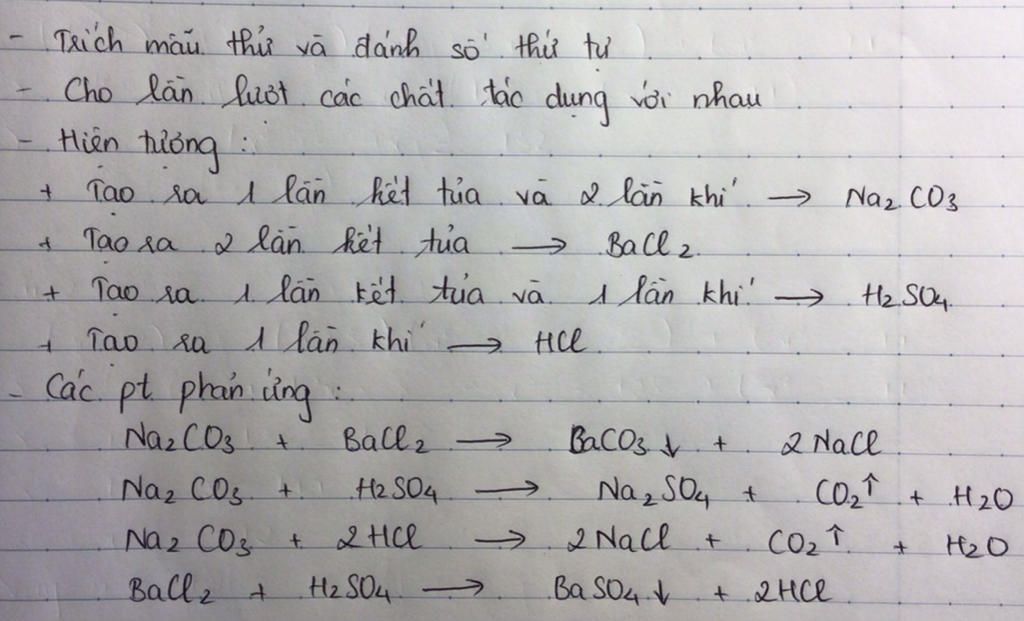 - Trích mẫu thử và đánh số thứ tự
- Cho lần lượt các chất tác dụng với nhau
- Hiện tượng :
+ Tạo ra 1 lần kết tủa và 2 lần khí → Na₂CO₃
+ Tạo ra 2 lần kết tủa → BaCl₂
+ Tạo ra 1 lần kết tủa và 1 lần khí → H₂SO₄
+ Tạo ra 1 lần khí → HCl
- Các pt phản ứng :
Na₂CO₃ + BaCl₂ → BaCO₃↓ + 2NaCl
Na₂CO₃ + H₂SO₄ → Na₂SO₄ + CO₂↑ + H₂O
Na₂CO₃ + 2HCl → 2NaCl + CO₂↑ + H₂O
BaCl₂ + H₂SO₄ → BaSO₄↓ + 2HCl